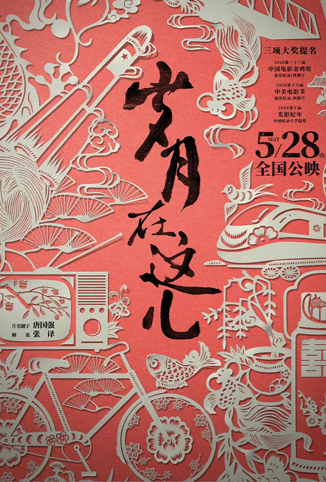 岁月在这儿
三项大奖提名
2020第三十三届
中国电影金鸡奖
最佳纪录/科教片
2020第十六届
中美电影节
最佳纪录/科教片
2020第十届
光影纪年
中国纪录片学院奖
MAY
5/28
全国公映
片名题字 唐国强
解说 张译
囍